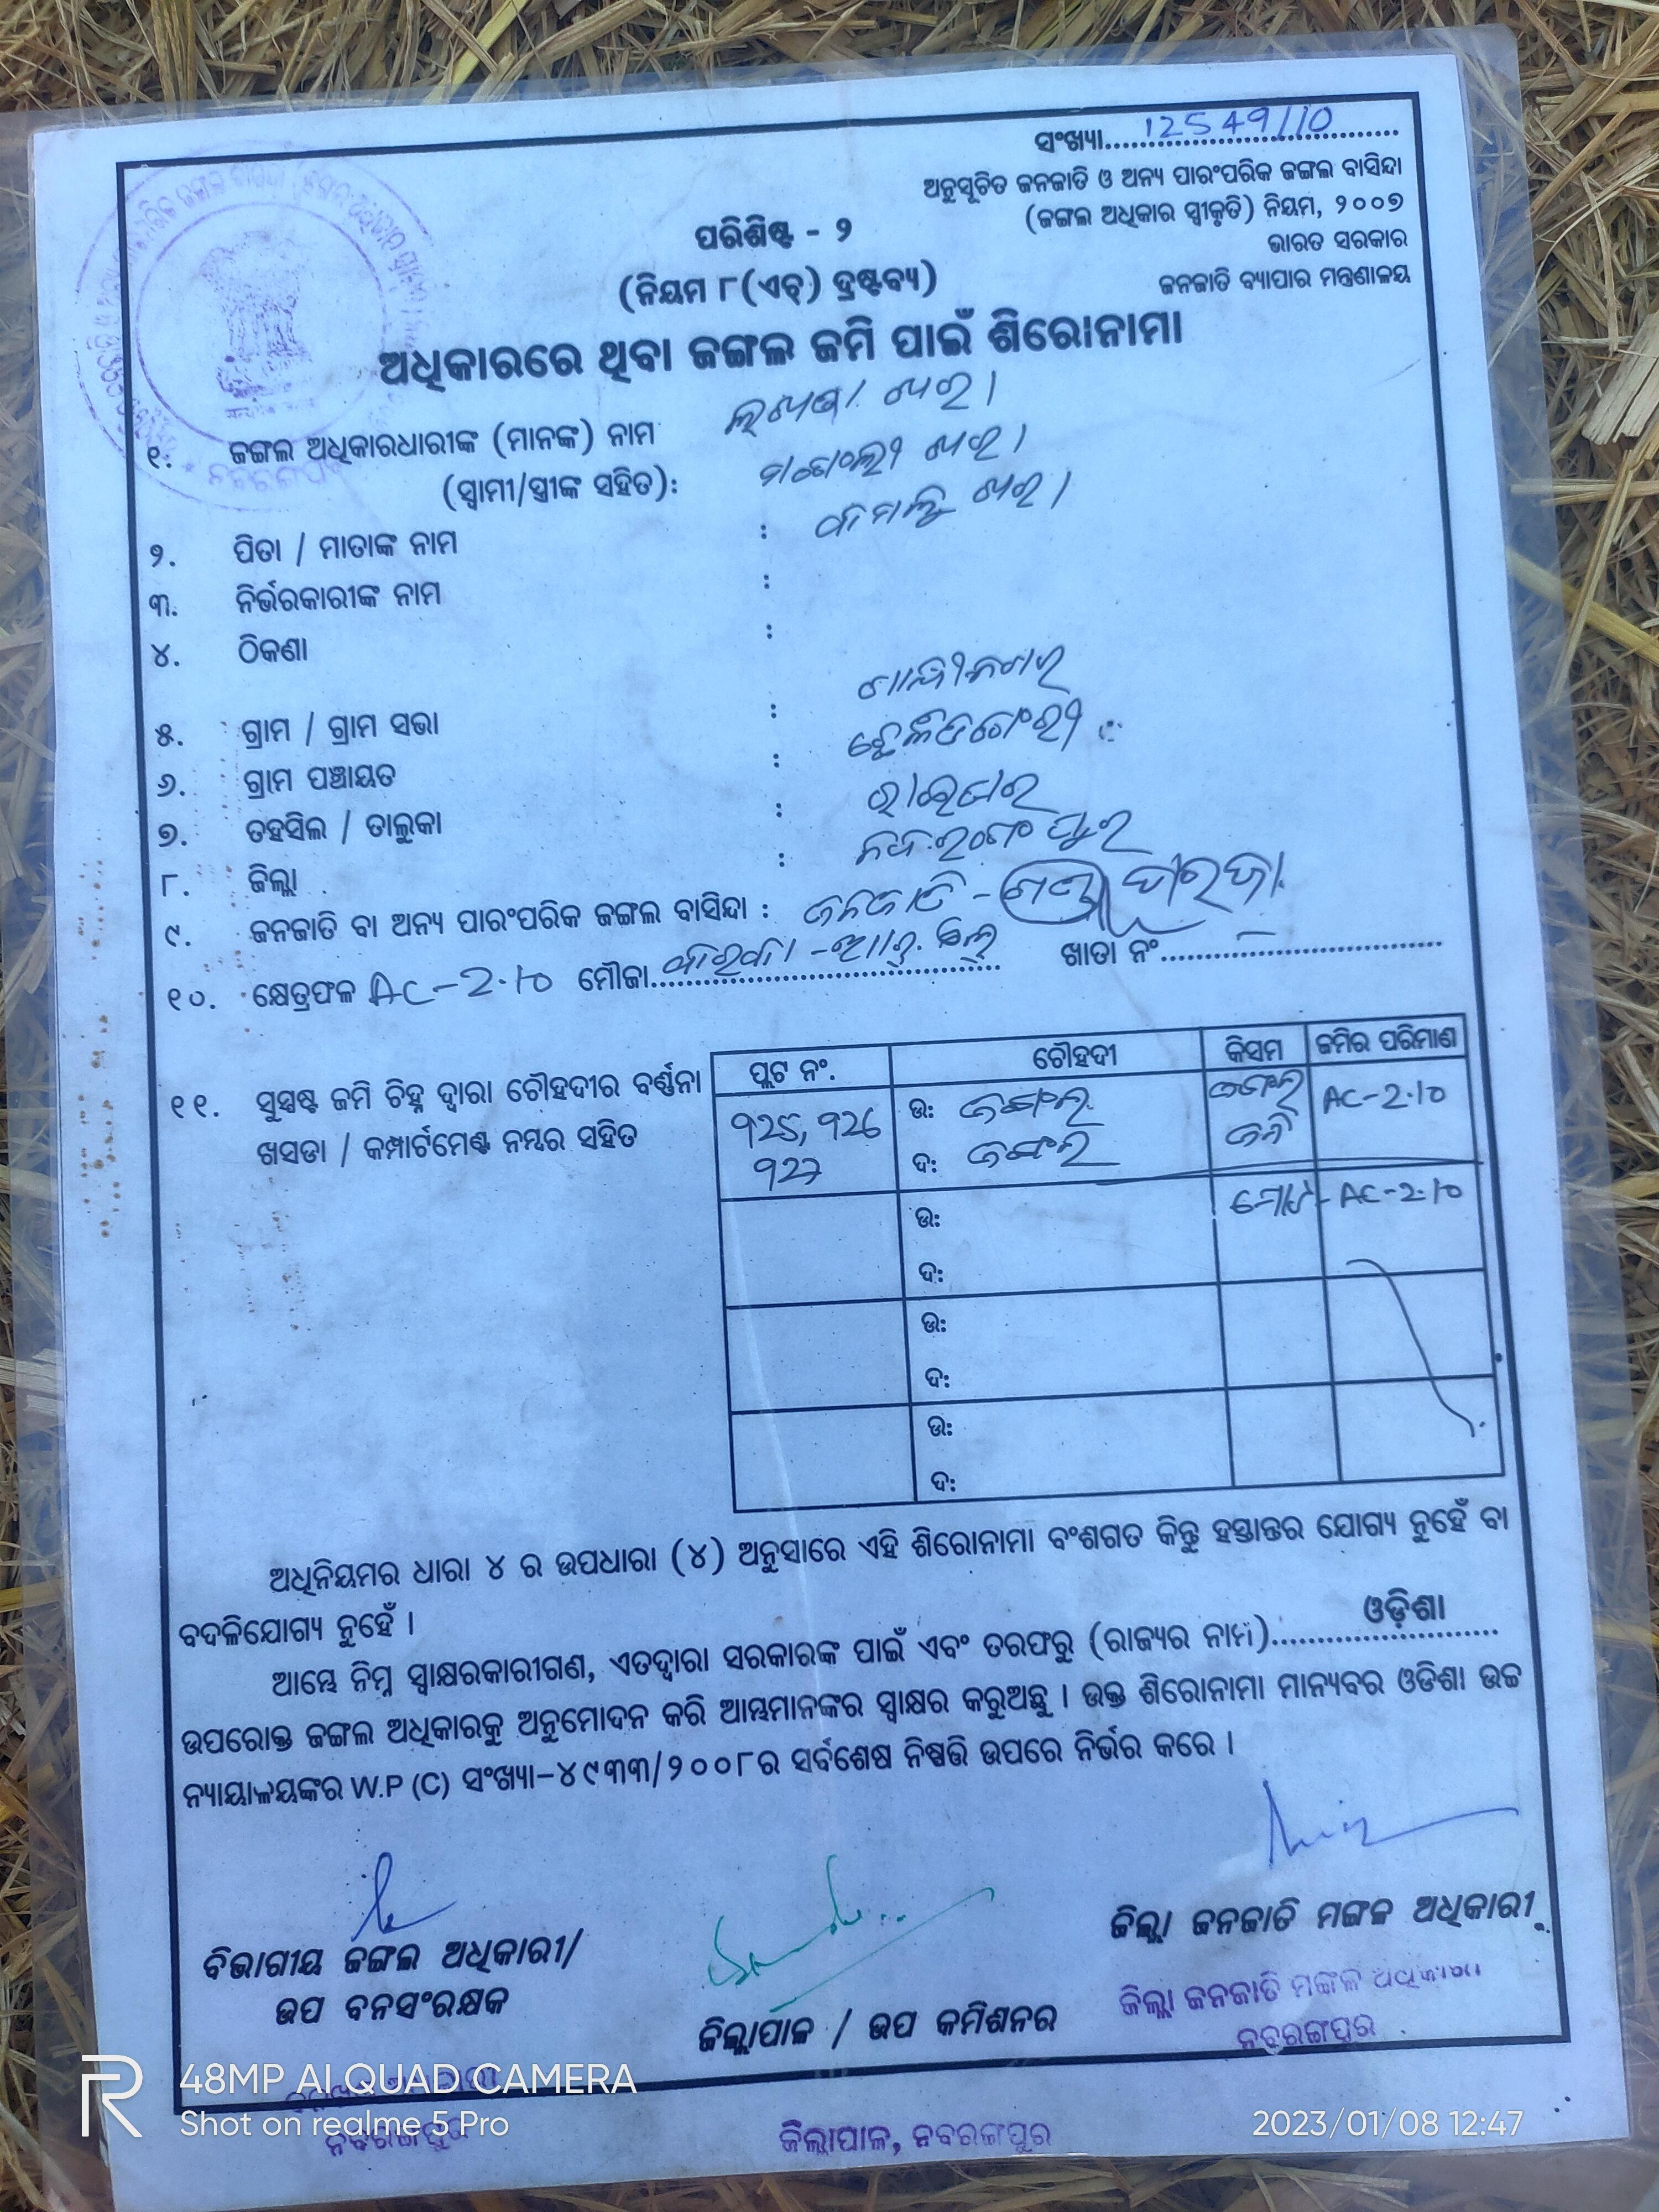 ସଂଖ୍ୟା.....12549/10.....
ଅନୁସୂଚିତ ଜନଜାତି ଓ ଅନ୍ୟ ପାରଂପରିକ ଜଙ୍ଗଲ ବାସିନ୍ଦା
(ଜଙ୍ଗଲ ଅଧିକାର ସ୍ୱୀକୃତି) ନିୟମ, ୨୦୦୭
ଭାରତ ସରକାର
ଜନଜାତି ବ୍ୟାପାର ମନ୍ତ୍ରଣାଳୟ
ପରିଶିଷ୍ଟ - ୨
(ନିୟମ ୮(ଏଚ୍) ଦ୍ରଷ୍ଟବ୍ୟ)
ଅଧିକାରରେ ଥିବା ଜଙ୍ଗଲ ଜମି ପାଇଁ ଶିରୋନାମା
୧. ଜଙ୍ଗଲ ଅଧିକାରଧାରୀଙ୍କ (ମାନଙ୍କ) ନାମ
(ସ୍ୱାମୀ/ସ୍ତ୍ରୀଙ୍କ ସହିତ):
୨. ପିତା / ମାତାଙ୍କ ନାମ :
୩. ନିର୍ଭରକାରୀଙ୍କ ନାମ :
୪. ଠିକଣା :
୫. ଗ୍ରାମ / ଗ୍ରାମ ସଭା :
୬. ଗ୍ରାମ ପଞ୍ଚାୟତ :
୭. ତହସିଲ / ତାଲୁକା : ରାଇଘର
୮. ଜିଲ୍ଲା : ନବରଙ୍ଗପୁର
୯. ଜନଜାତି ବା ଅନ୍ୟ ପାରଂପରିକ ଜଙ୍ଗଲ ବାସିନ୍ଦା : ଜନଜାତି -
୧୦. କ୍ଷେତ୍ରଫଳ AC-2.10 ମୌଜା..... ଖାତା ନଂ.....
୧୧. ସୁସ୍ପଷ୍ଟ ଜମି ଚିହ୍ନ ଦ୍ୱାରା ଚୌହଦୀର ବର୍ଣ୍ଣନା
ଖସଡା / କମ୍ପାର୍ଟମେଣ୍ଟ ନମ୍ବର ସହିତ
ପ୍ଲଟ ନଂ. ଚୌହଦୀ କିସମ ଜମିର ପରିମାଣ
925, 926 ଉ: ଜଙ୍ଗଲ ଜଙ୍ଗଲ AC-2.10
927 ଦ: ଜଙ୍ଗଲ ଜମି
ଉ: ମୋଟ- AC-2.10
ଦ:
ଉ:
ଦ:
ଉ:
ଦ:
ଅଧିନିୟମର ଧାରା ୪ ର ଉପଧାରା (୪) ଅନୁସାରେ ଏହି ଶିରୋନାମା ବଂଶଗତ କିନ୍ତୁ ହସ୍ତାନ୍ତର ଯୋଗ୍ୟ ନୁହେଁ ବା
ବଦଳିଯୋଗ୍ୟ ନୁହେଁ ।
ଆମ୍ଭେ ନିମ୍ନ ସ୍ୱାକ୍ଷରକାରୀଗଣ, ଏତଦ୍ୱାରା ସରକାରଙ୍କ ପାଇଁ ଏବଂ ତରଫରୁ (ରାଜ୍ୟର ନାମ).....ଓଡ଼ିଶା.....
ଉପରୋକ୍ତ ଜଙ୍ଗଲ ଅଧିକାରକୁ ଅନୁମୋଦନ କରି ଆମ୍ଭମାନଙ୍କର ସ୍ୱାକ୍ଷର କରୁଅଛୁ । ଉକ୍ତ ଶିରୋନାମା ମାନ୍ୟବର ଓଡିଶା ଉଚ୍ଚ
ନ୍ୟାୟାଳୟଙ୍କର W.P (C) ସଂଖ୍ୟା-୪୯୩୩/୨୦୦୮ର ସର୍ବଶେଷ ନିଷ୍ପତ୍ତି ଉପରେ ନିର୍ଭର କରେ ।
ବିଭାଗୀୟ ଜଙ୍ଗଲ ଅଧିକାରୀ/
ଉପ ବନସଂରକ୍ଷକ
ଜିଲ୍ଲାପାଳ / ଉପ କମିଶନର
ଜିଲ୍ଲା ଜନଜାତି ମଙ୍ଗଳ ଅଧିକାରୀ
ଜିଲ୍ଲା ଜନଜାତି ମଙ୍ଗଳ ଅଧିକାରୀ
ନବରଙ୍ଗପୁର
ନବରଙ୍ଗପୁର
ଜିଲ୍ଲାପାଳ, ନବରଙ୍ଗପୁର
48MP AI QUAD CAMERA
Shot on realme 5 Pro
2023/01/08 12:47